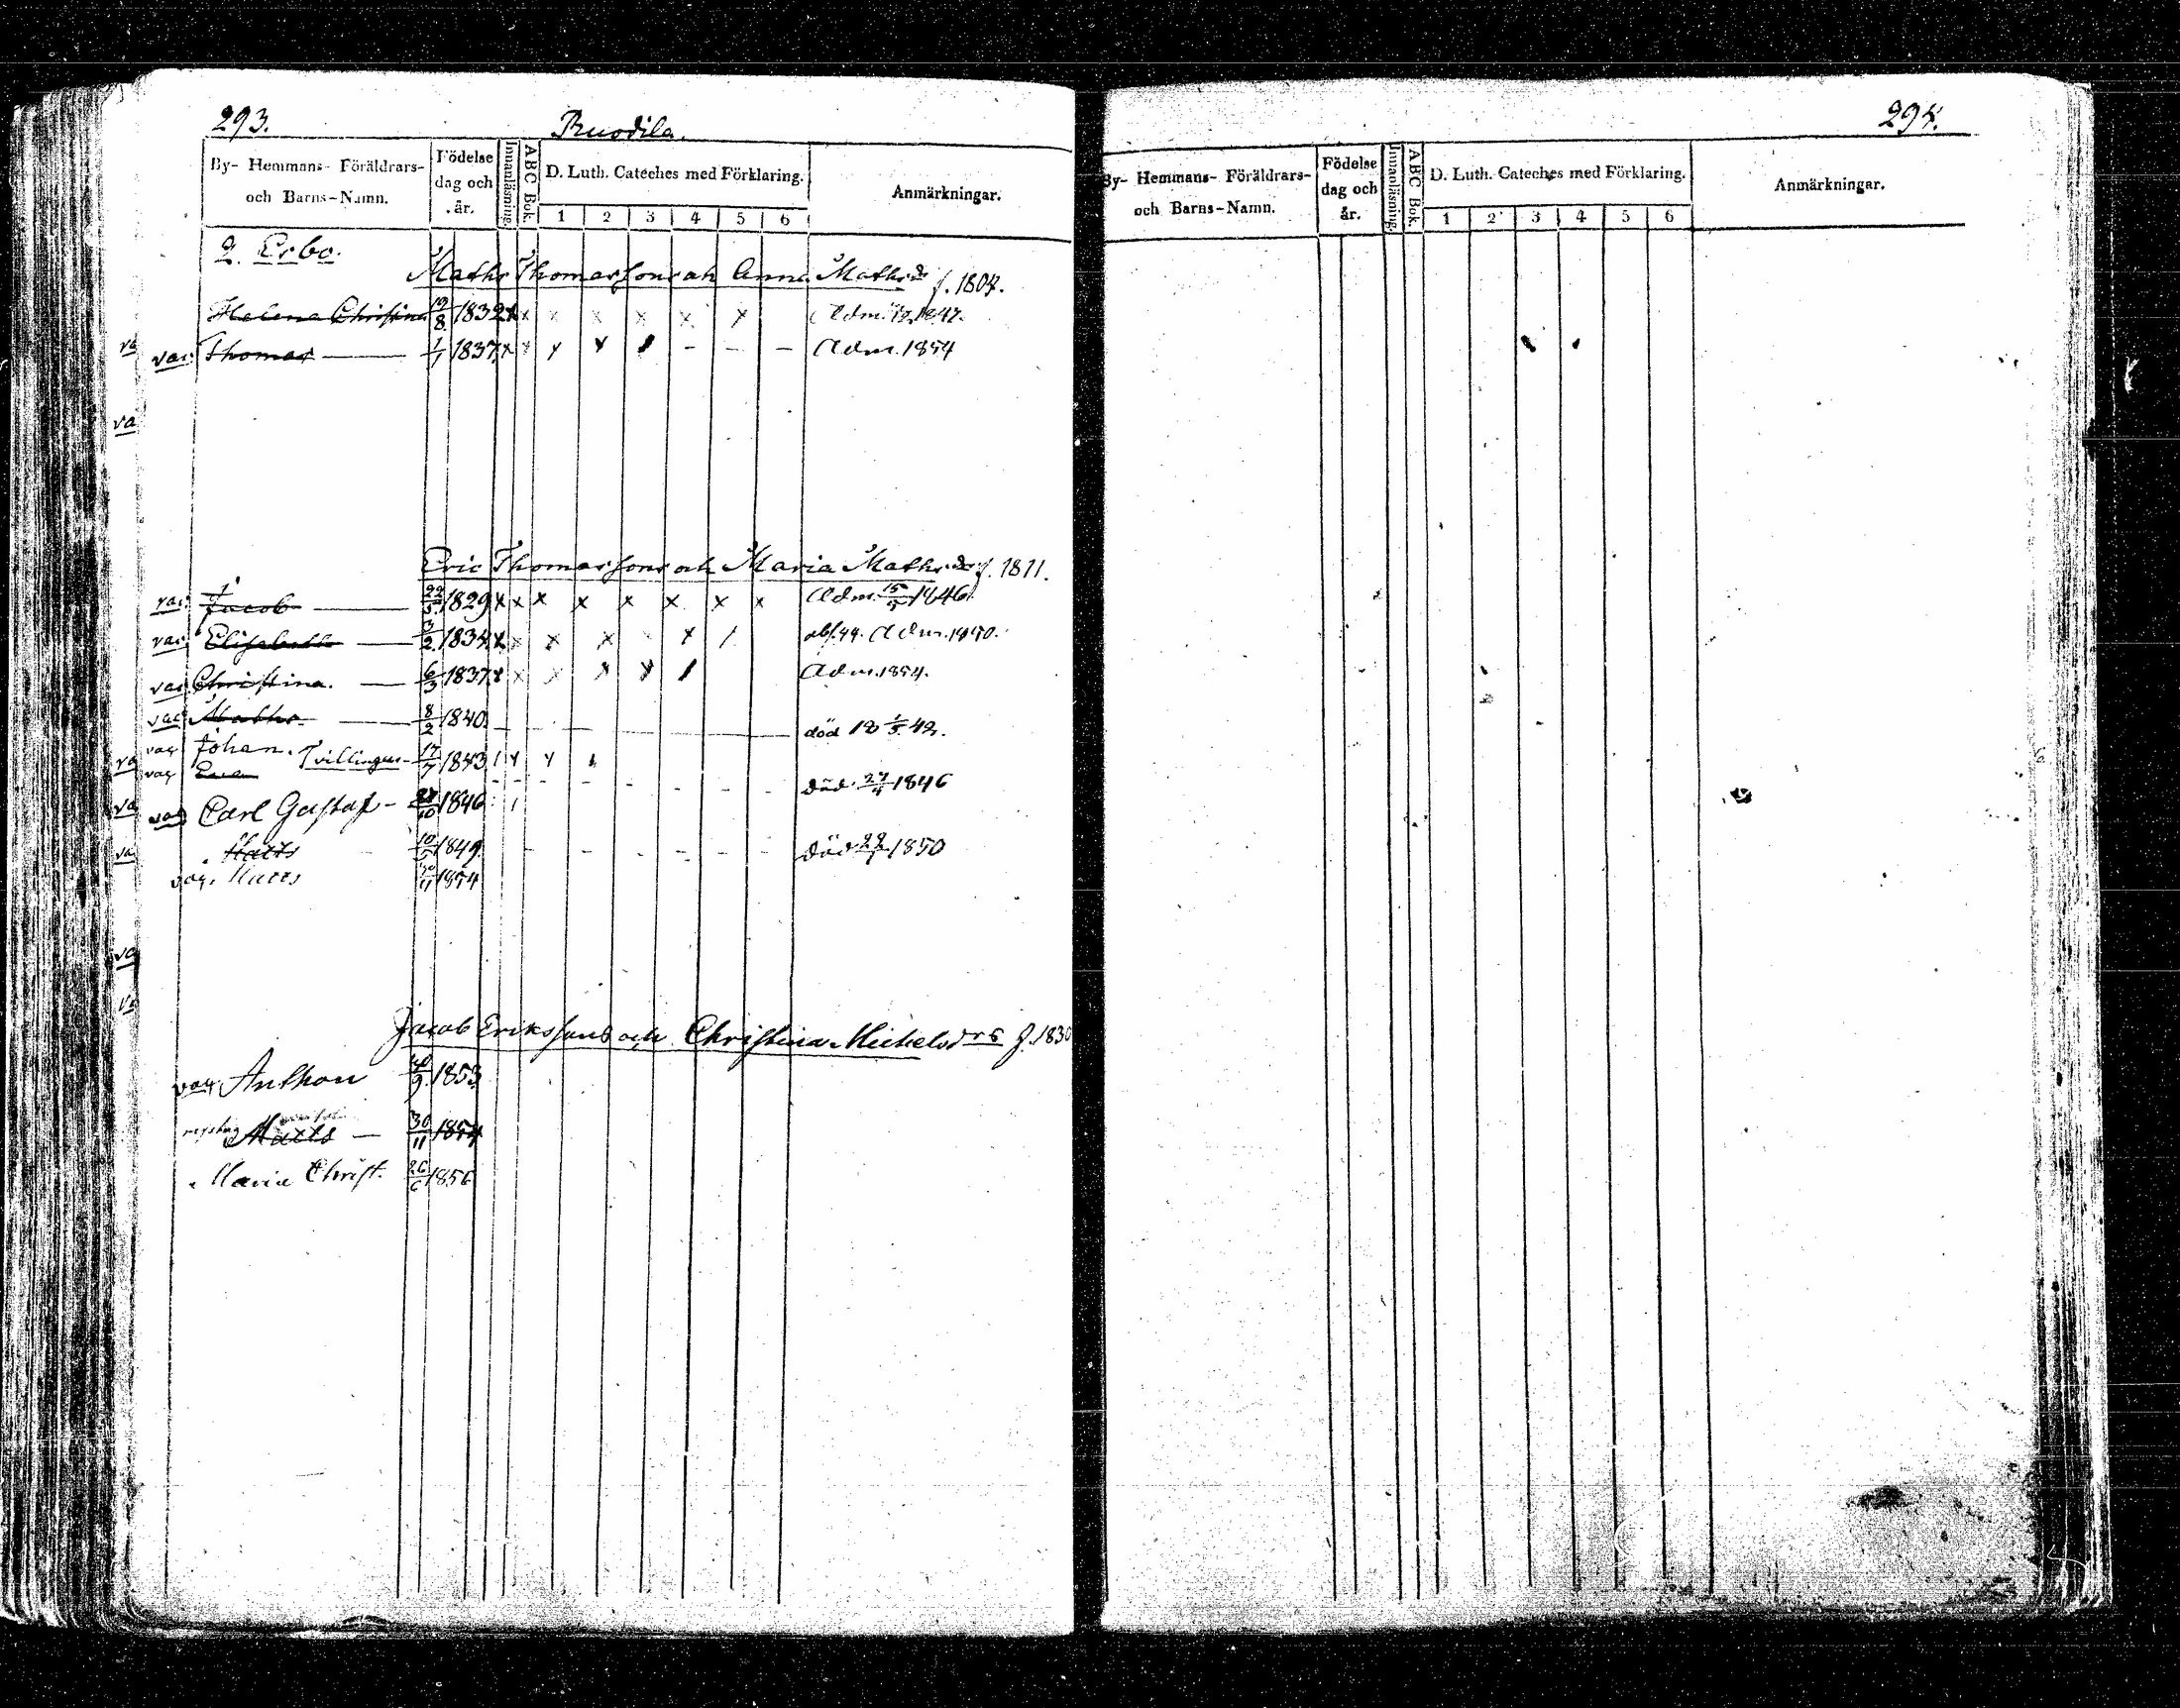 293.
Ruodila.
By- Hemmans- Föräldrars- och Barns-Namn.
Födelse dag och år.
Innanläsning.
ABC Bok.
D. Luth. Cateches med Förklaring.
1 2 3 4 5 6
Anmärkningar.
2. Erbo.
Maths Thomassons och Anna Mathsdr f. 1804.
Helena Christina 19/8 1832 x x x x x x x Adm. 1847.
vac. Thomas — 1/1 1837 x x x x / - - - Adm. 1854
Eric Thomassons och Maria Mathsdr f. 1811.
vac. Jacob — 22/5 1829 x x x x x x x x Adm. 15/ 1846
vac. Elisabeth — 3/2 1834 x x x x x / abs. 44. Adm. 1850.
vac Christina. — 6/3 1837 x x x x x / Adm. 1854.
vac Maths — 8/2 1840 — död 18 1/5 42.
vac Johan. Tvillingar 17/7 1843 / x x
vac Eva - - - - - - - död 27/ 1846
vac Carl Gustaf - 10 1846 /
Matts 10/5 1849. - - - - - - död 22/ 1850
vac. Matts 30/11 1854
Jacob Erikssons och Christina Michelsdrs f. 1830
vac Anthon 9 1853
Matts — 30/11 1854
Maria Christ. 26/6 1856
294.
By- Hemmans- Föräldrars- och Barns-Namn.
Födelse dag och år.
Innanläsning.
ABC Bok.
D. Luth. Cateches med Förklaring.
1 2 3 4 5 6
Anmärkningar.